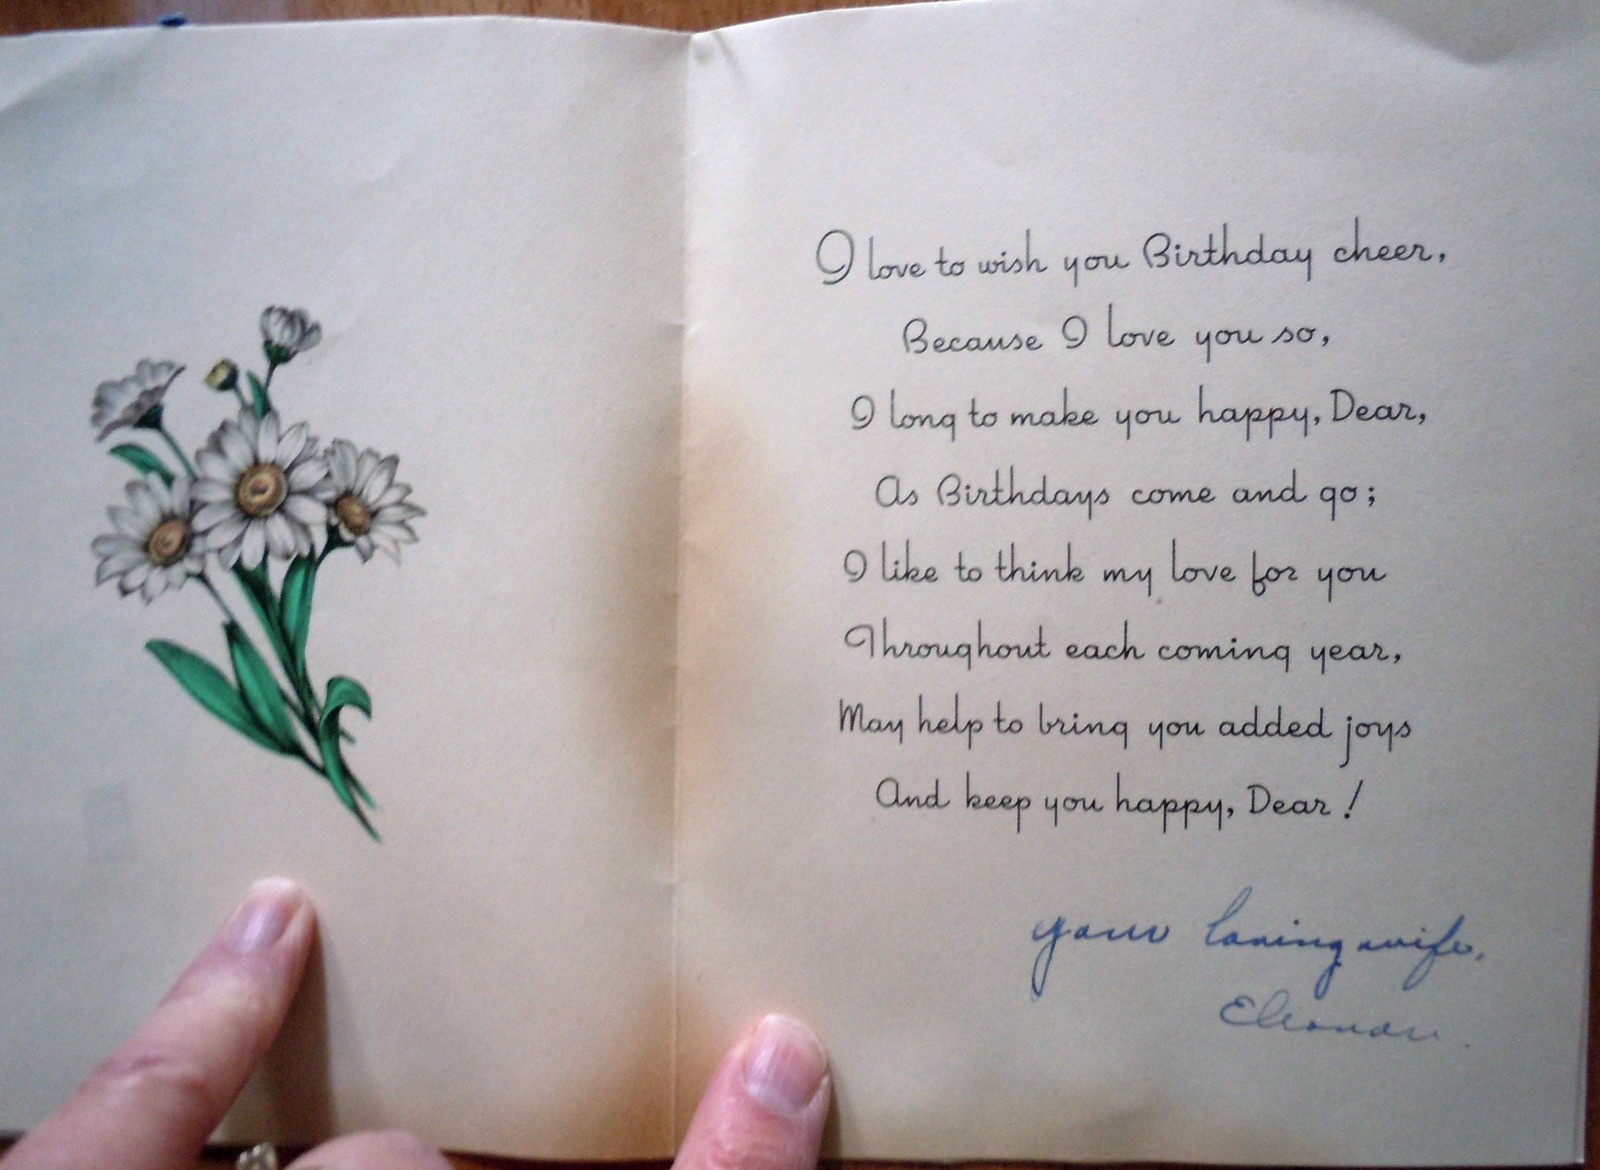 I love to wish you Birthday cheer,
Because I love you so,
I long to make you happy, Dear,
As Birthdays come and go;
I like to think my love for you
Throughout each coming year,
May help to bring you added joys
And keep you happy, Dear!
your loving wife,
Eleanor.